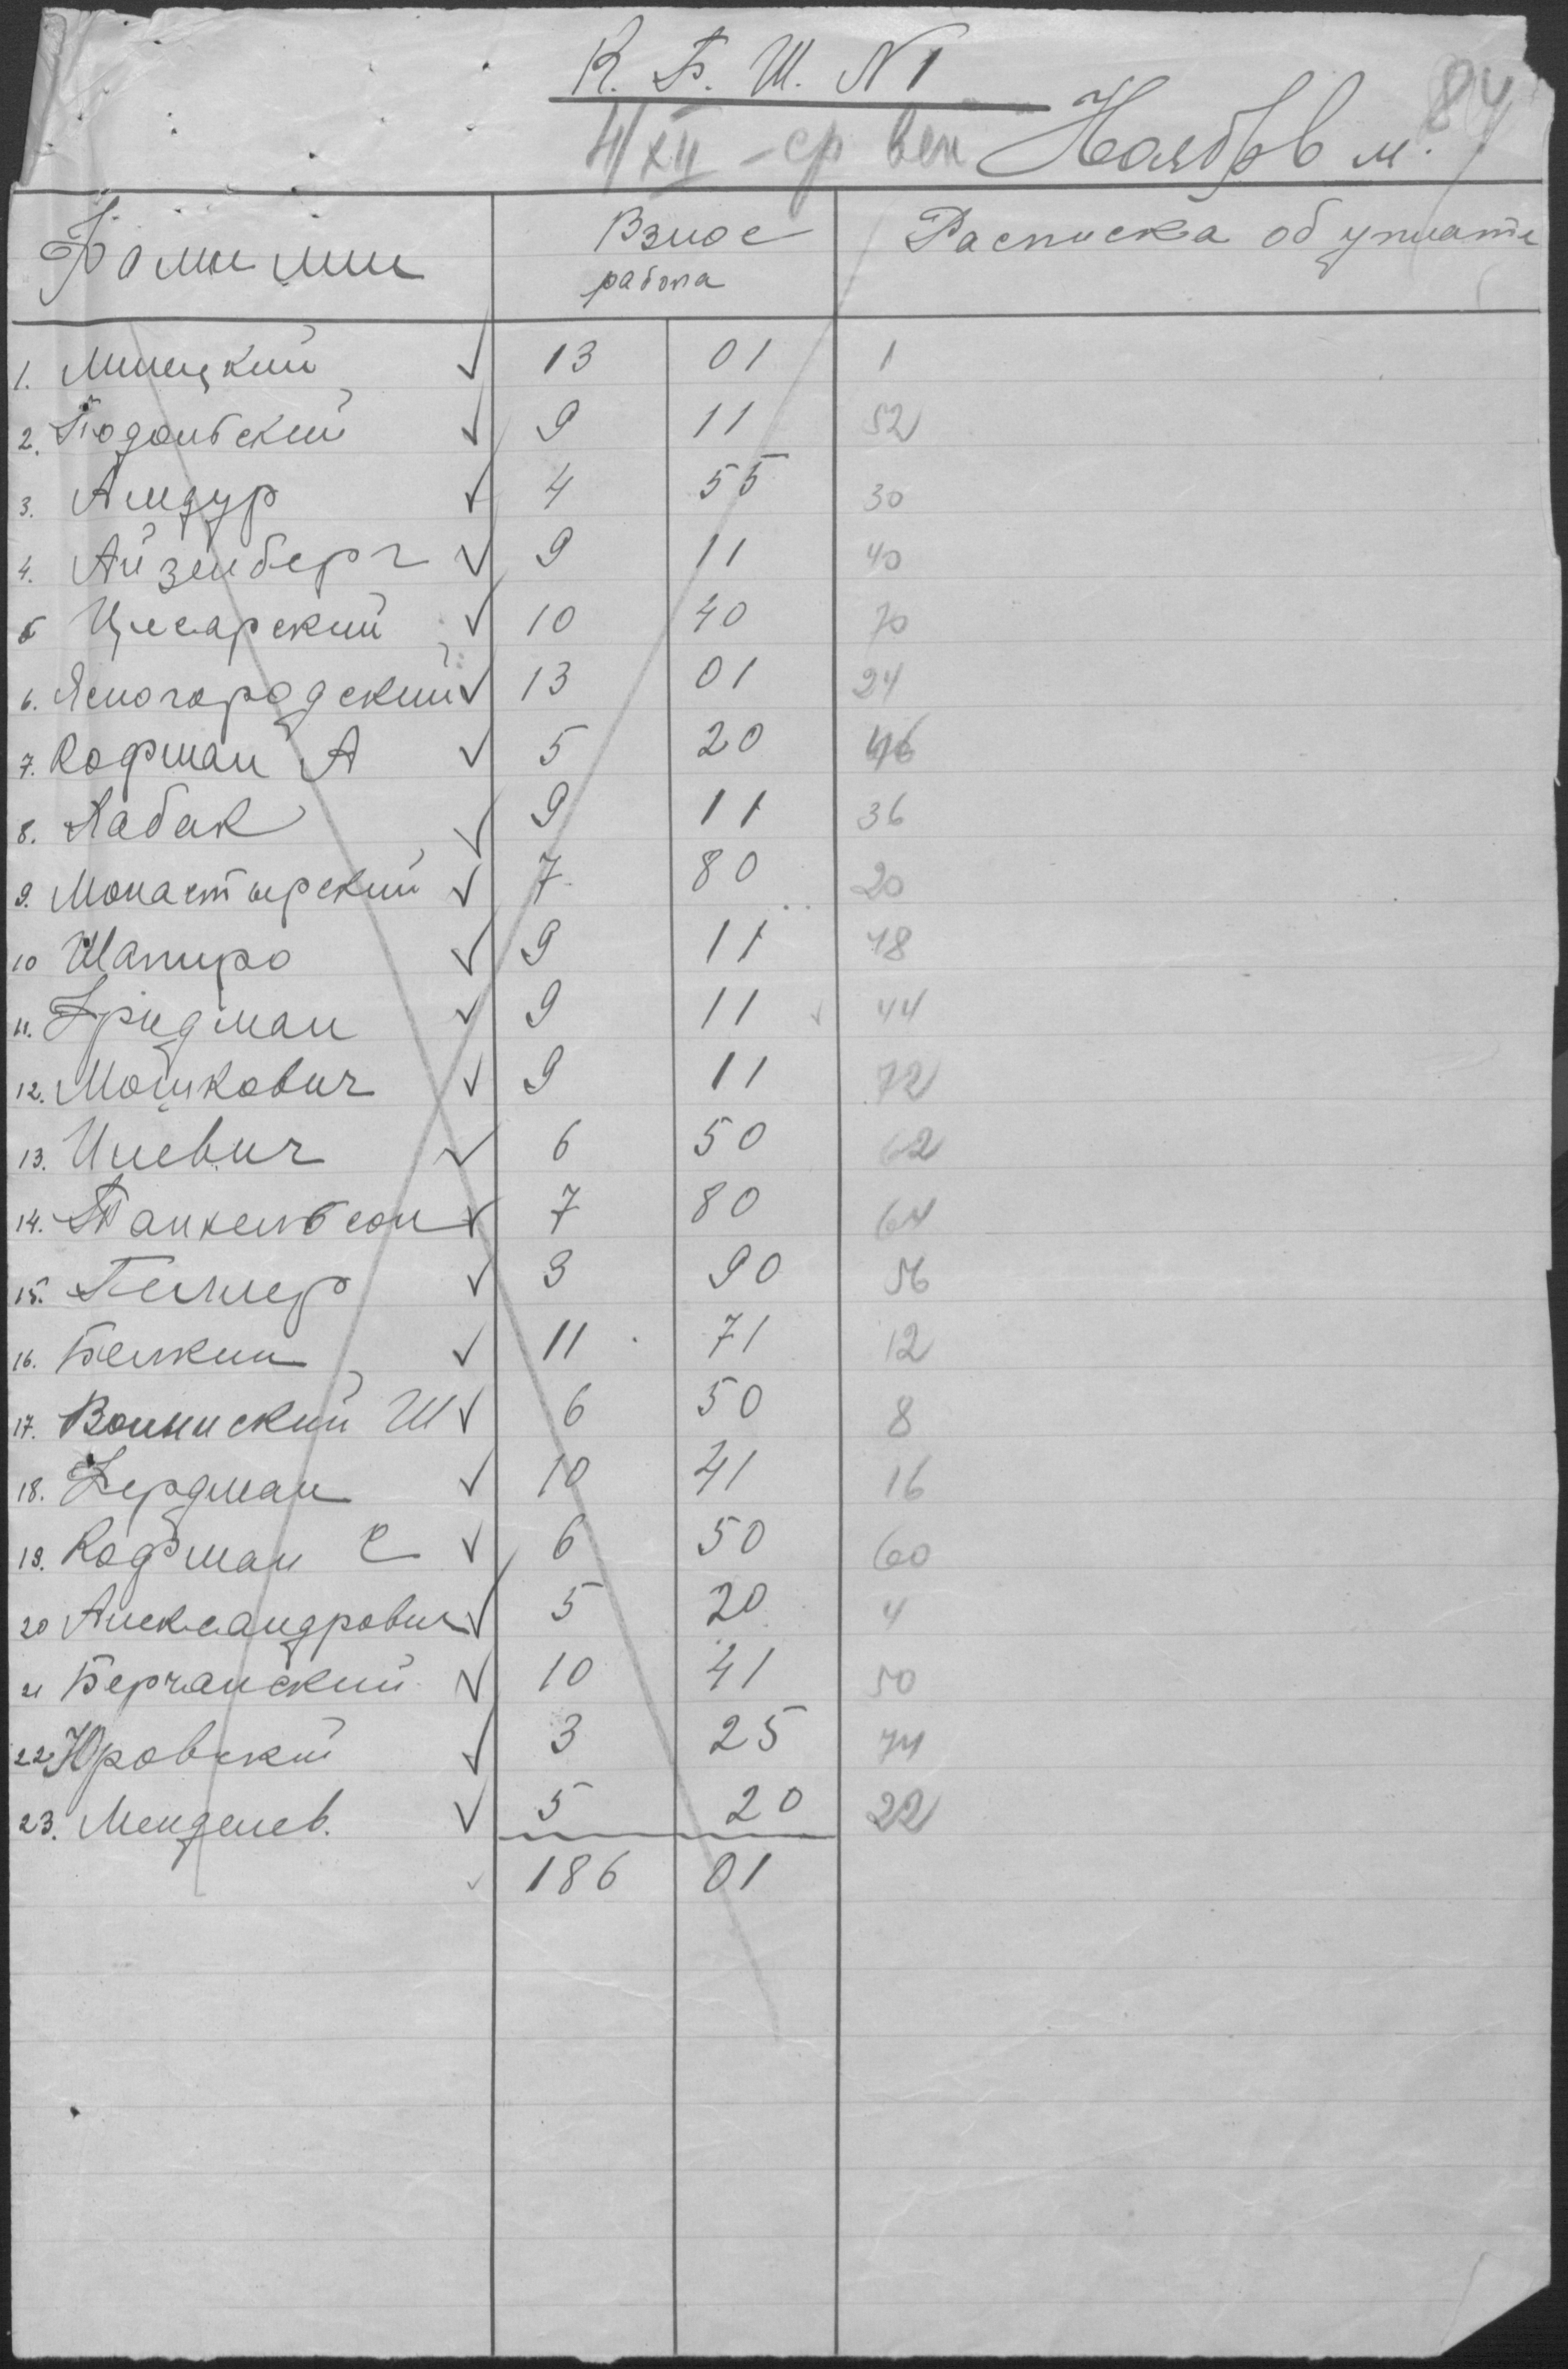 К. Б. Ш. N 1
84
4/XII - ср веч Ноябрь м.
Фамилии Взнос Расписка об уплате
работа
1. Минецкий ✓ 13 01 1
2. Подольский ✓ 9 11 52
3. Амдур ✓ 4 55 30
4. Айзенберг ✓ 9 11 40
5 Цесарский ✓ 10 40 70
6. Ясногородский ✓ 13 01 24
7. Кофман А ✓ 5 20 46
8. Хабак ✓ 9 11 36
9. Монастырский ✓ 7 80 20
10 Шапиро ✓ 9 11 18
11. Фридман ✓ 9 11 ✓ 44
12. Мошкович ✓ 9 11 72
13. Илевич ✓ 6 50 62
14. Танхельсон ✓ 7 80 64
15. Геллер ✓ 3 90 56
16. Белкин ✓ 11 71 12
17. Волынский Ш ✓ 6 50 8
18. Фердман ✓ 10 41 16
19. Кофман С ✓ 6 50 60
20 Александрович ✓ 5 20 4
21 Берчанский ✓ 10 41 50
22 Юровский ✓ 3 25 74
23. Менделев. ✓ 5 20 22
✓ 186 01